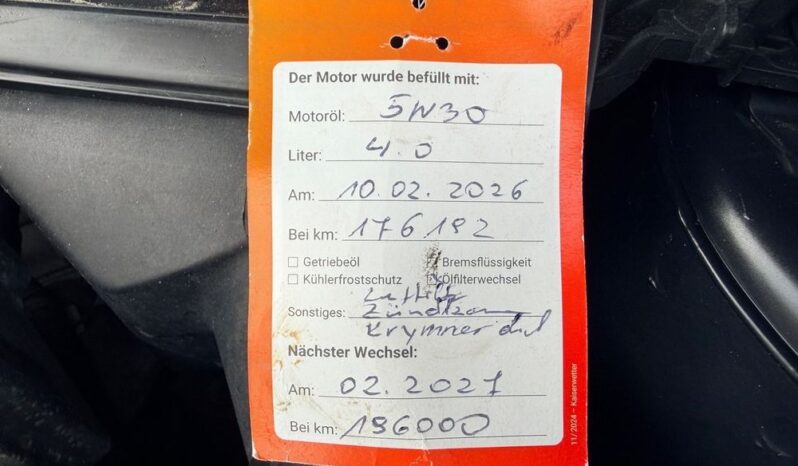 Der Motor wurde befüllt mit:
Motoröl: 5W30
Liter: 4.0
Am: 10.02.2026
Bei km: 176192
Getriebeöl Bremsflüssigkeit
Kühlerfrostschutz Ölfilterwechsel
Sonstiges:
Nächster Wechsel:
Am: 02.2027
Bei km: 196000
11/2024 – Kaiserwetter